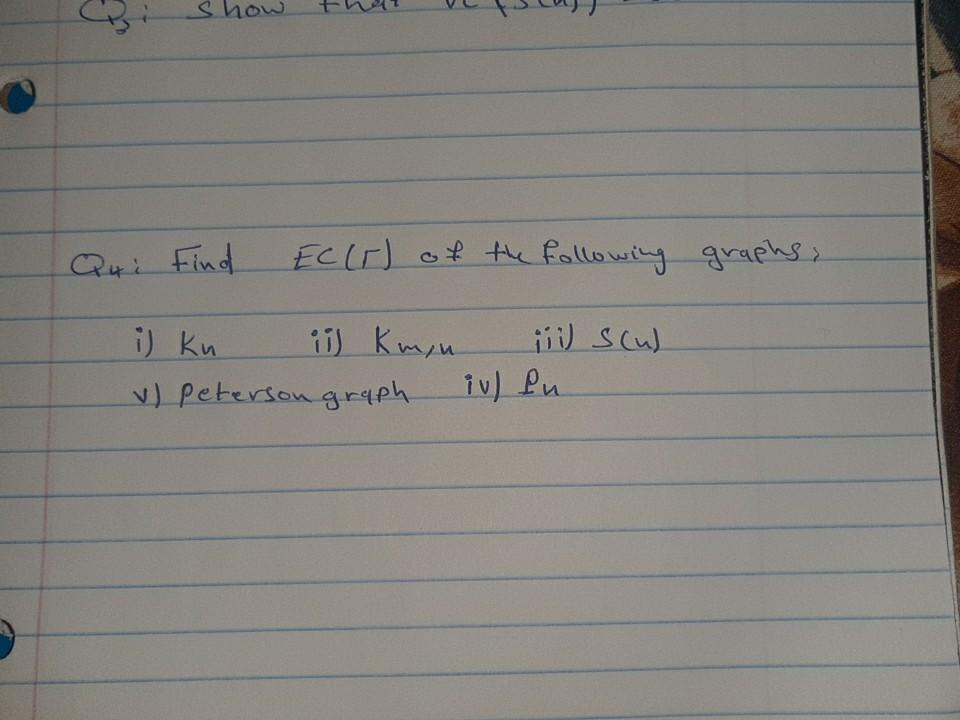 Q3: show that
Q4: Find EC(Γ) of the following graphs;
i) Kn ii) Km,n iii) S(n)
v) Peterson graph iv) Pn